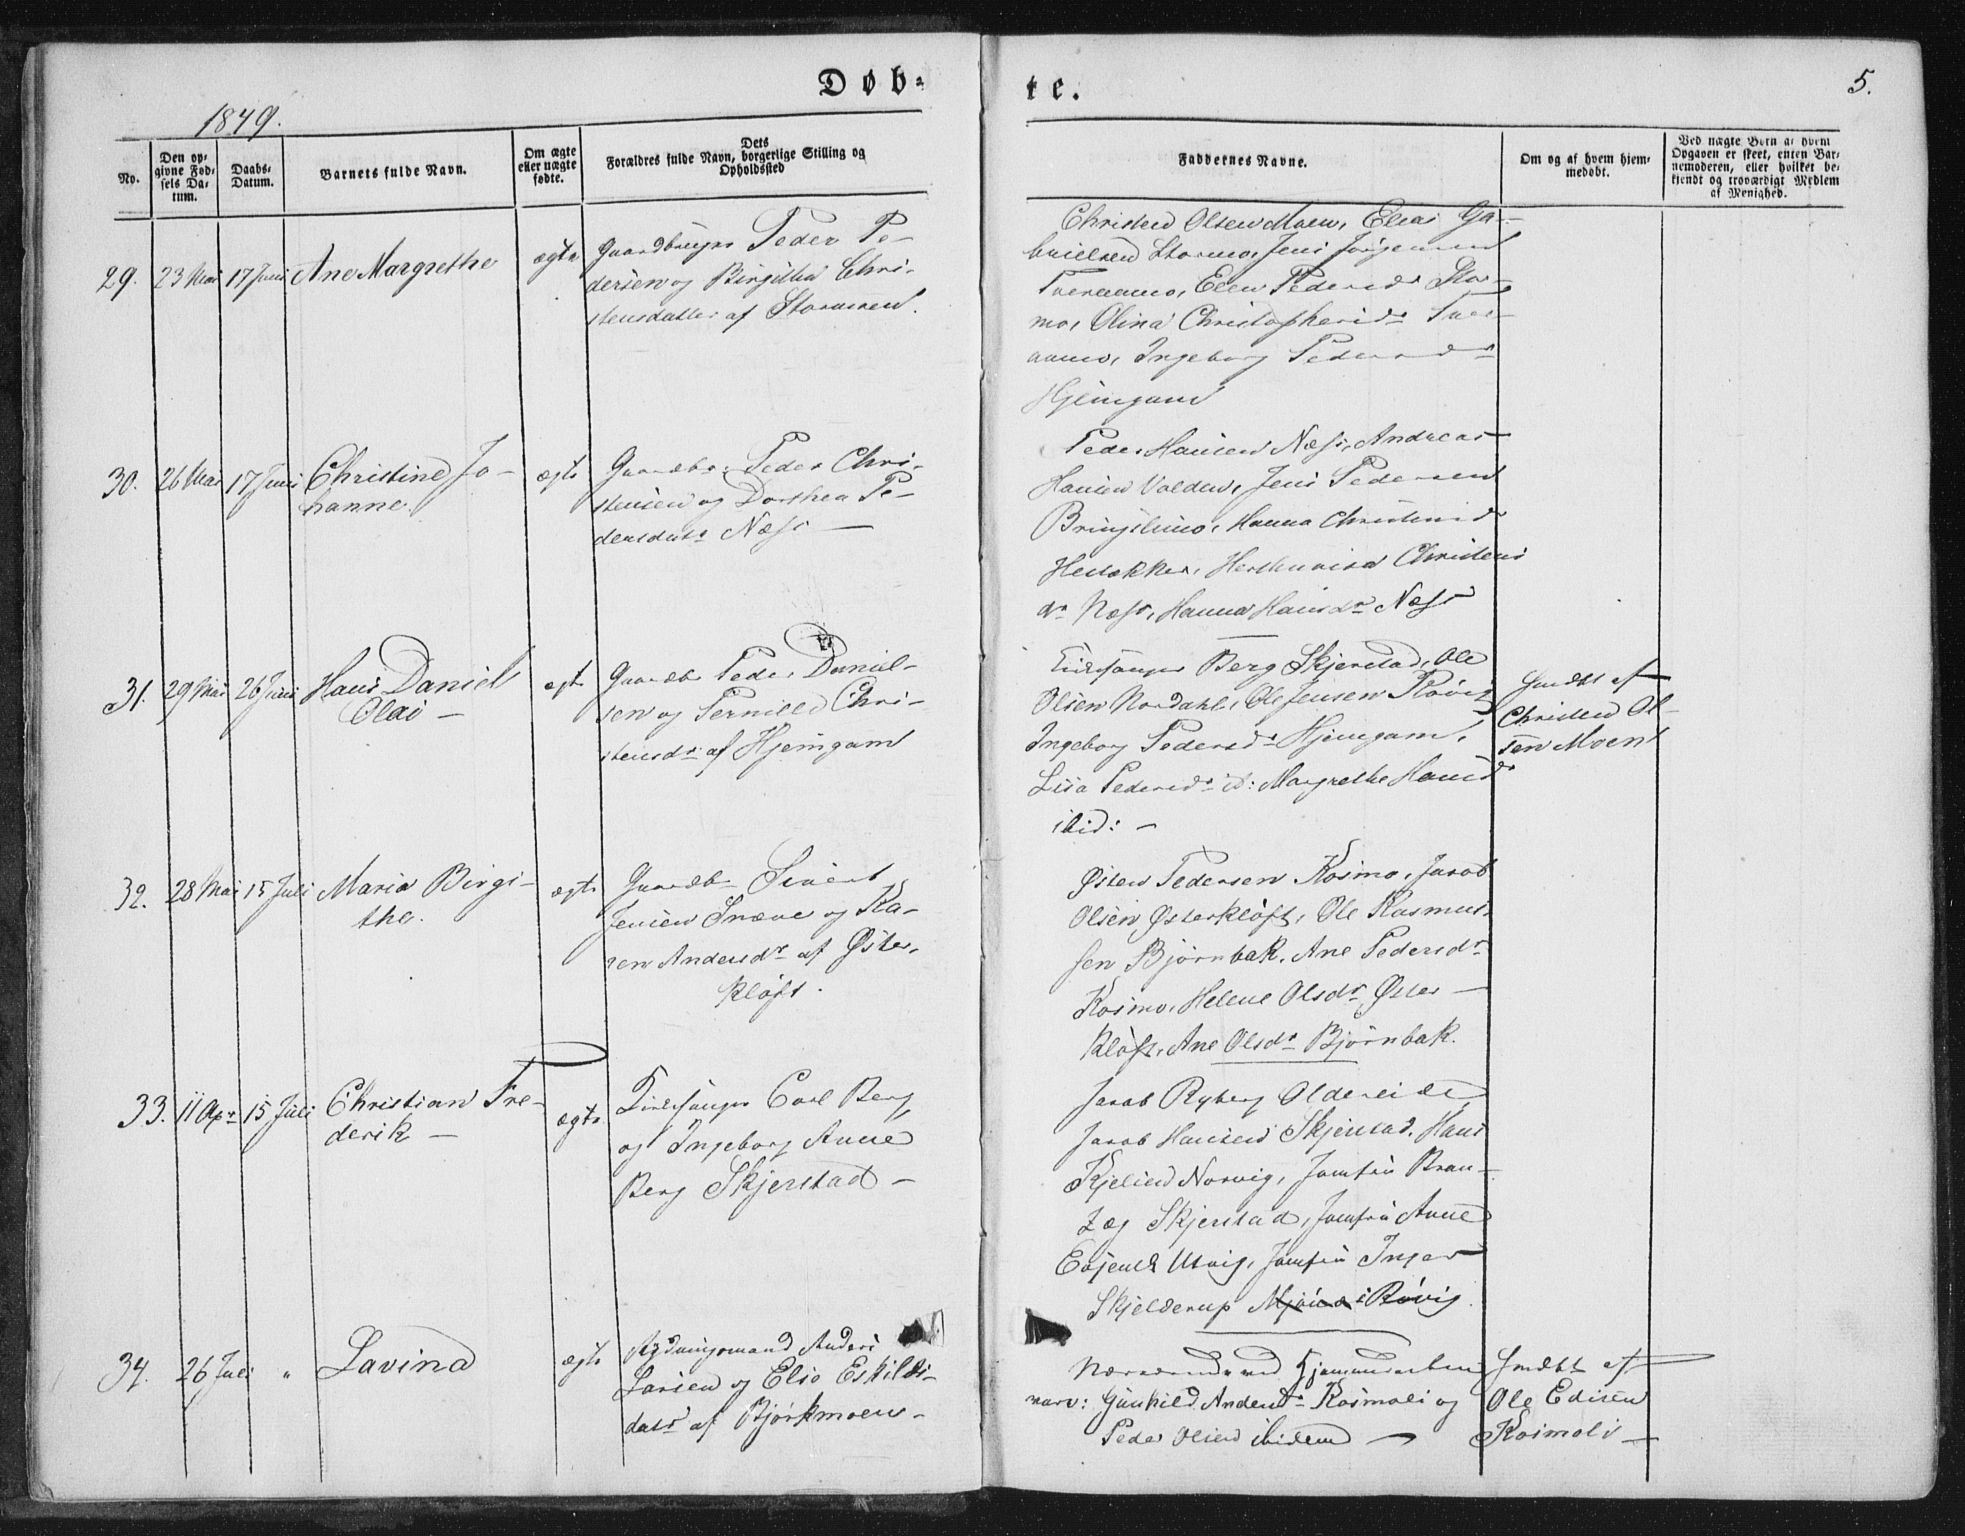 Døb-
te.
5.
1849.
No.
Den opgivne Fødsels Datum.
Daabs-Datum.
Barnets fulde Navn.
Om ægte eller uægte fødte.
Dets Forældres fulde Navn, borgerlige Stilling og Opholdssted
Faddernes Navne.
Om og af hvem hjemmedøbt.
Ved uægte Børn af hvem Opgaven er skeet, enten Barnemoderen, eller hvilket bekjendt og troværdigt Medlem af Menighed.
29. 23 Mai 17 Juni Ane Margrethe ægte
Gaardbruger Peder Pe-
dersen og Birgitha Chri-
stensdatter af Stormoen.
Christen Olsen Moen, Elias Ga-
brielsen Stormo, Jens Jørgensen
Tveraamo, Elen Pedersdr Stor-
mo, Olina Christophersdr Tver-
aamo, Ingeborg Pedersdr
Hjemgam
30. 26 Mai 17 Juni Christine Jo-
hanne. ægte
Gaardbr. Peder Chri-
stensen og Dorthea Pe-
dersdatr Næss —
Peder Hansen Næss, Andreas
Hansen Valden, Jens Pedersen
Bringslimo, Hanna Christensdr
Hestækker, Christens
dr Næss, Hanna Hansdr Næss
31. 29 Mai 26 Juni Hans Daniel
Olai — ægte
Gaardb. Peder Daniel-
sen og Pernille Chri-
stensdr af Hjemgam
Kirkesanger Berg Skjerstad, Ole
Olsen Nordahl, Ole Jensen Røvig
Ingeborg Pedersdr Hjemgam,
Lisa Pedersdr id: Margrethe Hansdr
ibid: —
Hmdbt af
Christen Ol-
sen Moen
32. 28 Mai 15 Juli Maria Birgi-
the. ægte
Gaardb. Sivert
Jensen Snæve og Ka-
ren Andersdr af Øster-
kløft.
Østen Pedersen Kosmo, Jacob
Olsen Østerkløft, Ole Rasmus-
sen Bjørnbak, Ane Pedersdr
Kosmo, Helene Olsdr Øster-
kløft, Ane Olsdr Bjørnbak.
33. 11 Apr 15 Juli Christian Fre-
derik — ægte
Kirkesanger Carl Berg
og Ingeborg Anne
Berg Skjerstad —
Jacob Ryberg Oldereide
Jacob Hansen Skjerstad, Hans
Kjelsen Norvig, Jomfru Bran-
Skjerstad, Jomfru Anne
Utvig, Jomfru Inger
Skjelderup Røvig.
34. 26 Juli " Lavina ægte
Rydningsmand Anders
Larsen og Elio Eskilds-
datr af Bjørkmoen —
Nærværende ved Hjemmedaaben
vare: Gunhild Andersdr Kosmoli og
Peder Olsen ibidem —
Hmdbt af
Ole Edisen
Kosmoli —